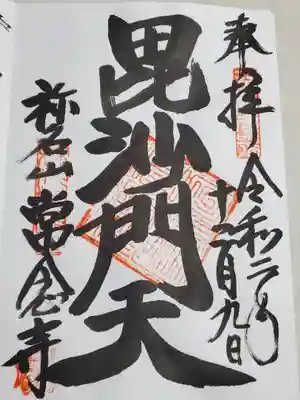 奉拝
令和二年
十二月九日
毘沙門天
稲名山
常念寺